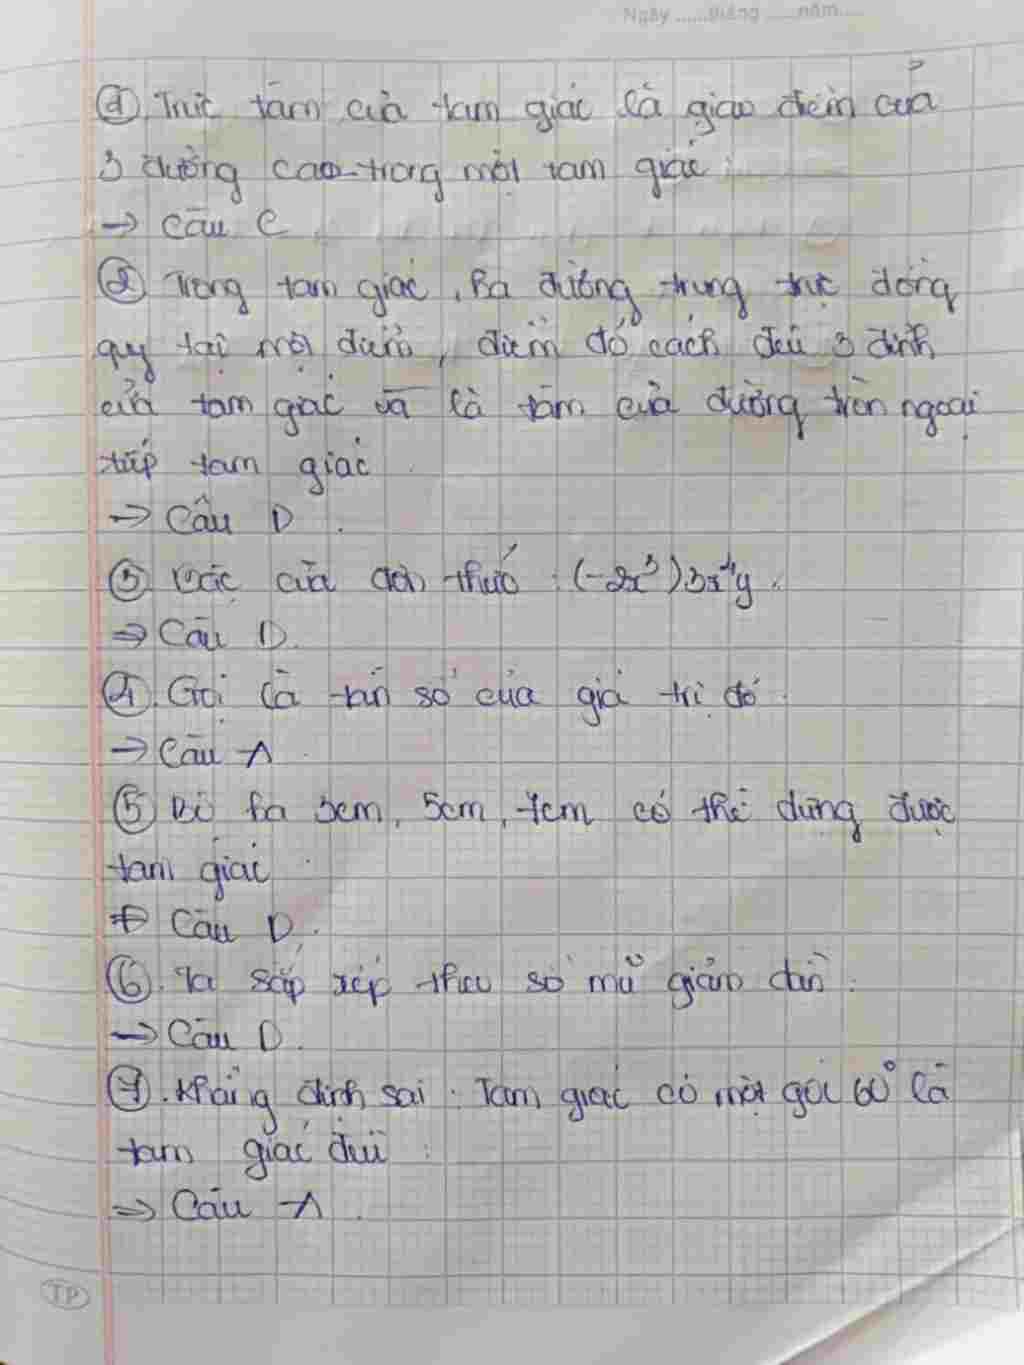 Ngày ......tháng ......năm......
① Trực tâm của tam giác là giao điểm của
3 đường cao trong một tam giác.
→ Câu C
② Trong tam giác, ba đường trung trực đồng
quy tại một điểm, điểm đó cách đều 3 đỉnh
của tam giác và là tâm của đường tròn ngoại
tiếp tam giác.
→ Câu D.
③ Bậc của đơn thức : (-2x³)3x⁴y.
⇒ Câu D.
④. Gọi là tần số của giá trị đó.
→ Câu A.
⑤ Bộ ba 3cm, 5cm, 7cm có thể dựng được
tam giác.
⇒ Câu D.
⑥. Ta sắp xếp theo số mũ giảm dần.
→ Câu D.
⑦. Khẳng định sai : Tam giác có một góc 60° là
tam giác đều.
⇒ Câu A.
TP